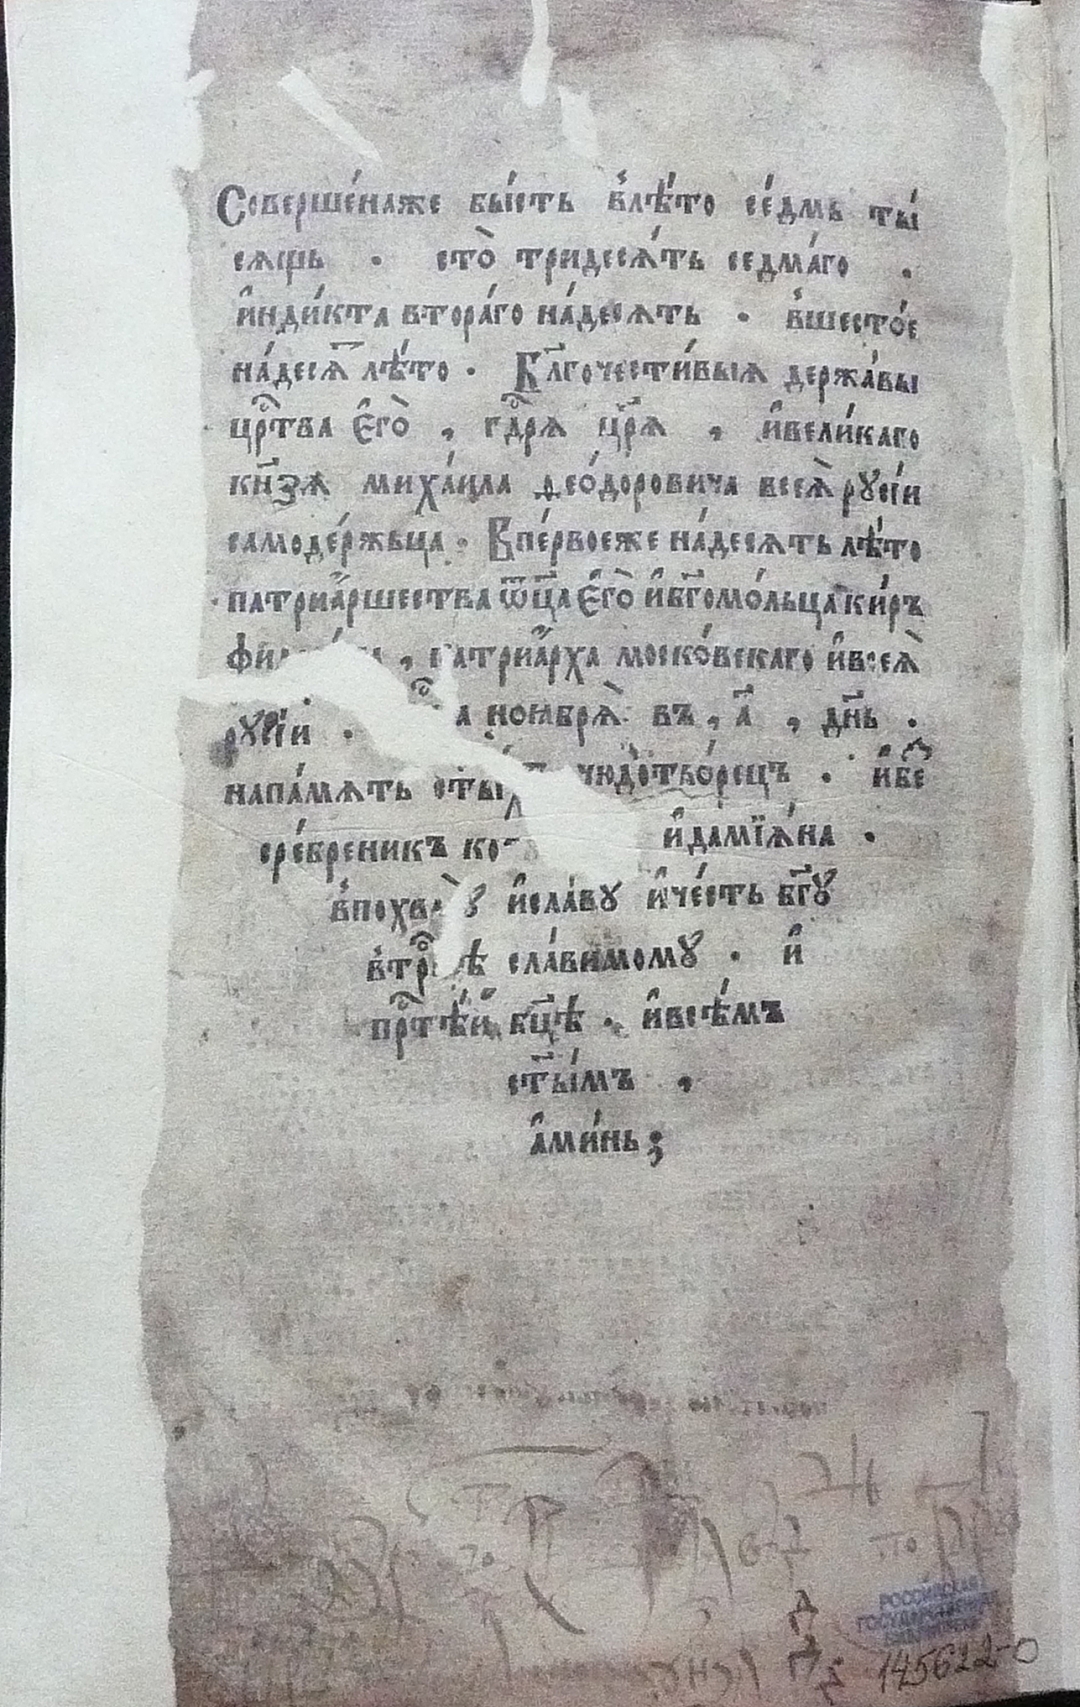 Соверше́наже бы́сть в̾лѣ́то се́дмь ты́
сящь . сто̀ тридеся́ть седма́го .
и҆нди́кта втора́го на́десять . в̾шесто́е
на́деся҇ лѣ́то . Бл҃гочести́выя держа́вы
црⷭ҇тва є҆гѡ̀ , гдⷭ҇ря цр҃я , и҆вели́каго
кн҃зя миха́ила ѳео́доровича всея̀ рꙋсі́и
самоде́ржьца . Впе́рвоеже на́десять лѣ́то
патриа́ршества ѿц҃а є҆го̀ и҆бг҃омо́льца ки́ръ
патриа́рха моско́вскаго и҆всея̀
рꙋсі́и . ноября̀ въ , а҃ , дн҃ь .
напа́мять чюдотво́рецъ . и҆бе
сре́бреникъ и҆дамїя́на .
и҆сла́вꙋ и҆че́сть бг҃ꙋ
сла́вимомꙋ . и҆
прⷭ҇тѣ́и бц҃ѣ . и҆всѣ́мъ
ст҃ы́мъ ,
а҆ми́нь ;
РОССИЙСКАЯ
ГОСУДАРСТВЕННАЯ
145622-О